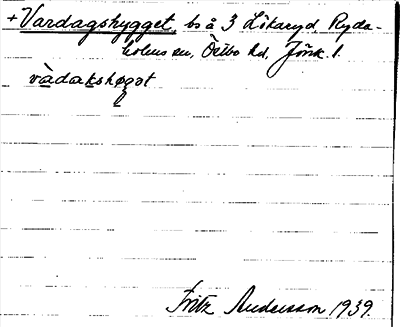 + Vardagshygget, bs å 3 Lökaryd, Ryda-
holms sn, Östbo hd, Jönk. l.
vàdakshǫgət
Fritz Andersson 1939.